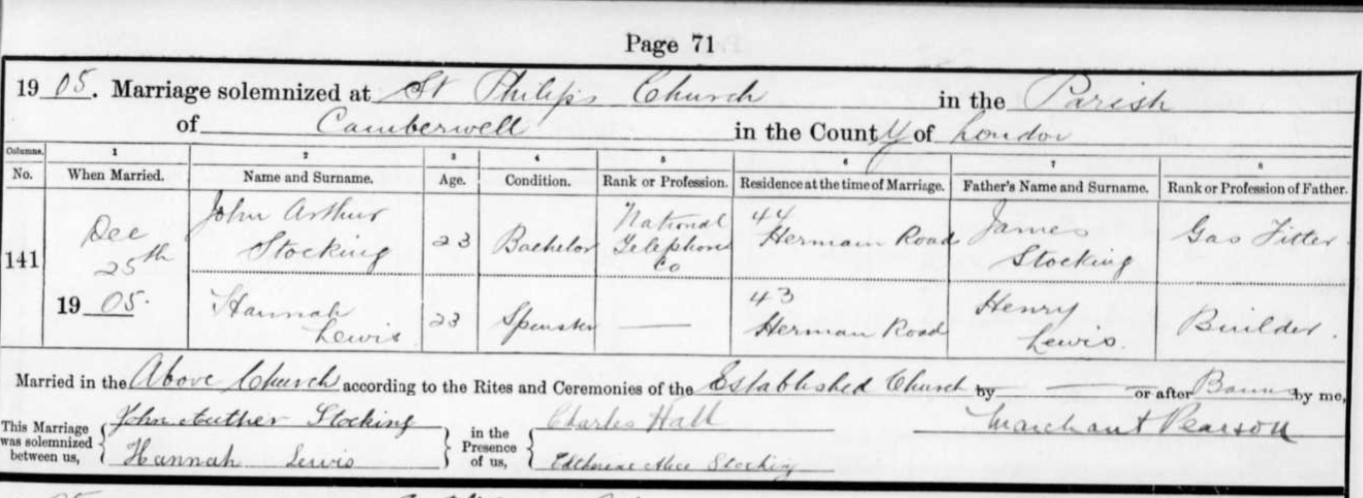 Page 71
1905. Marriage solemnized at St Philips Church in the Parish
of Camberwell in the County of London
Columns. 1 2 3 4 5 6 7 8
No. When Married. Name and Surname. Age. Condition. Rank or Profession. Residence at the time of Marriage. Father's Name and Surname. Rank or Profession of Father.
141 Dec 25th 1905.
John Arthur Stocking 23 Bachelor National Telephone Co 44 Hermain Road James Stocking Gas Fitter
Hannah Lewis 23 Spinster — 43 Herman Road Henry Lewis. Builder.
Married in the Above Church according to the Rites and Ceremonies of the Established Church by — or after Banns by me,
This Marriage was solemnized between us, John Auther Stocking in the Presence of us, Charles Hall Marchant Pearson
Hannah Lewis Alice Stocking